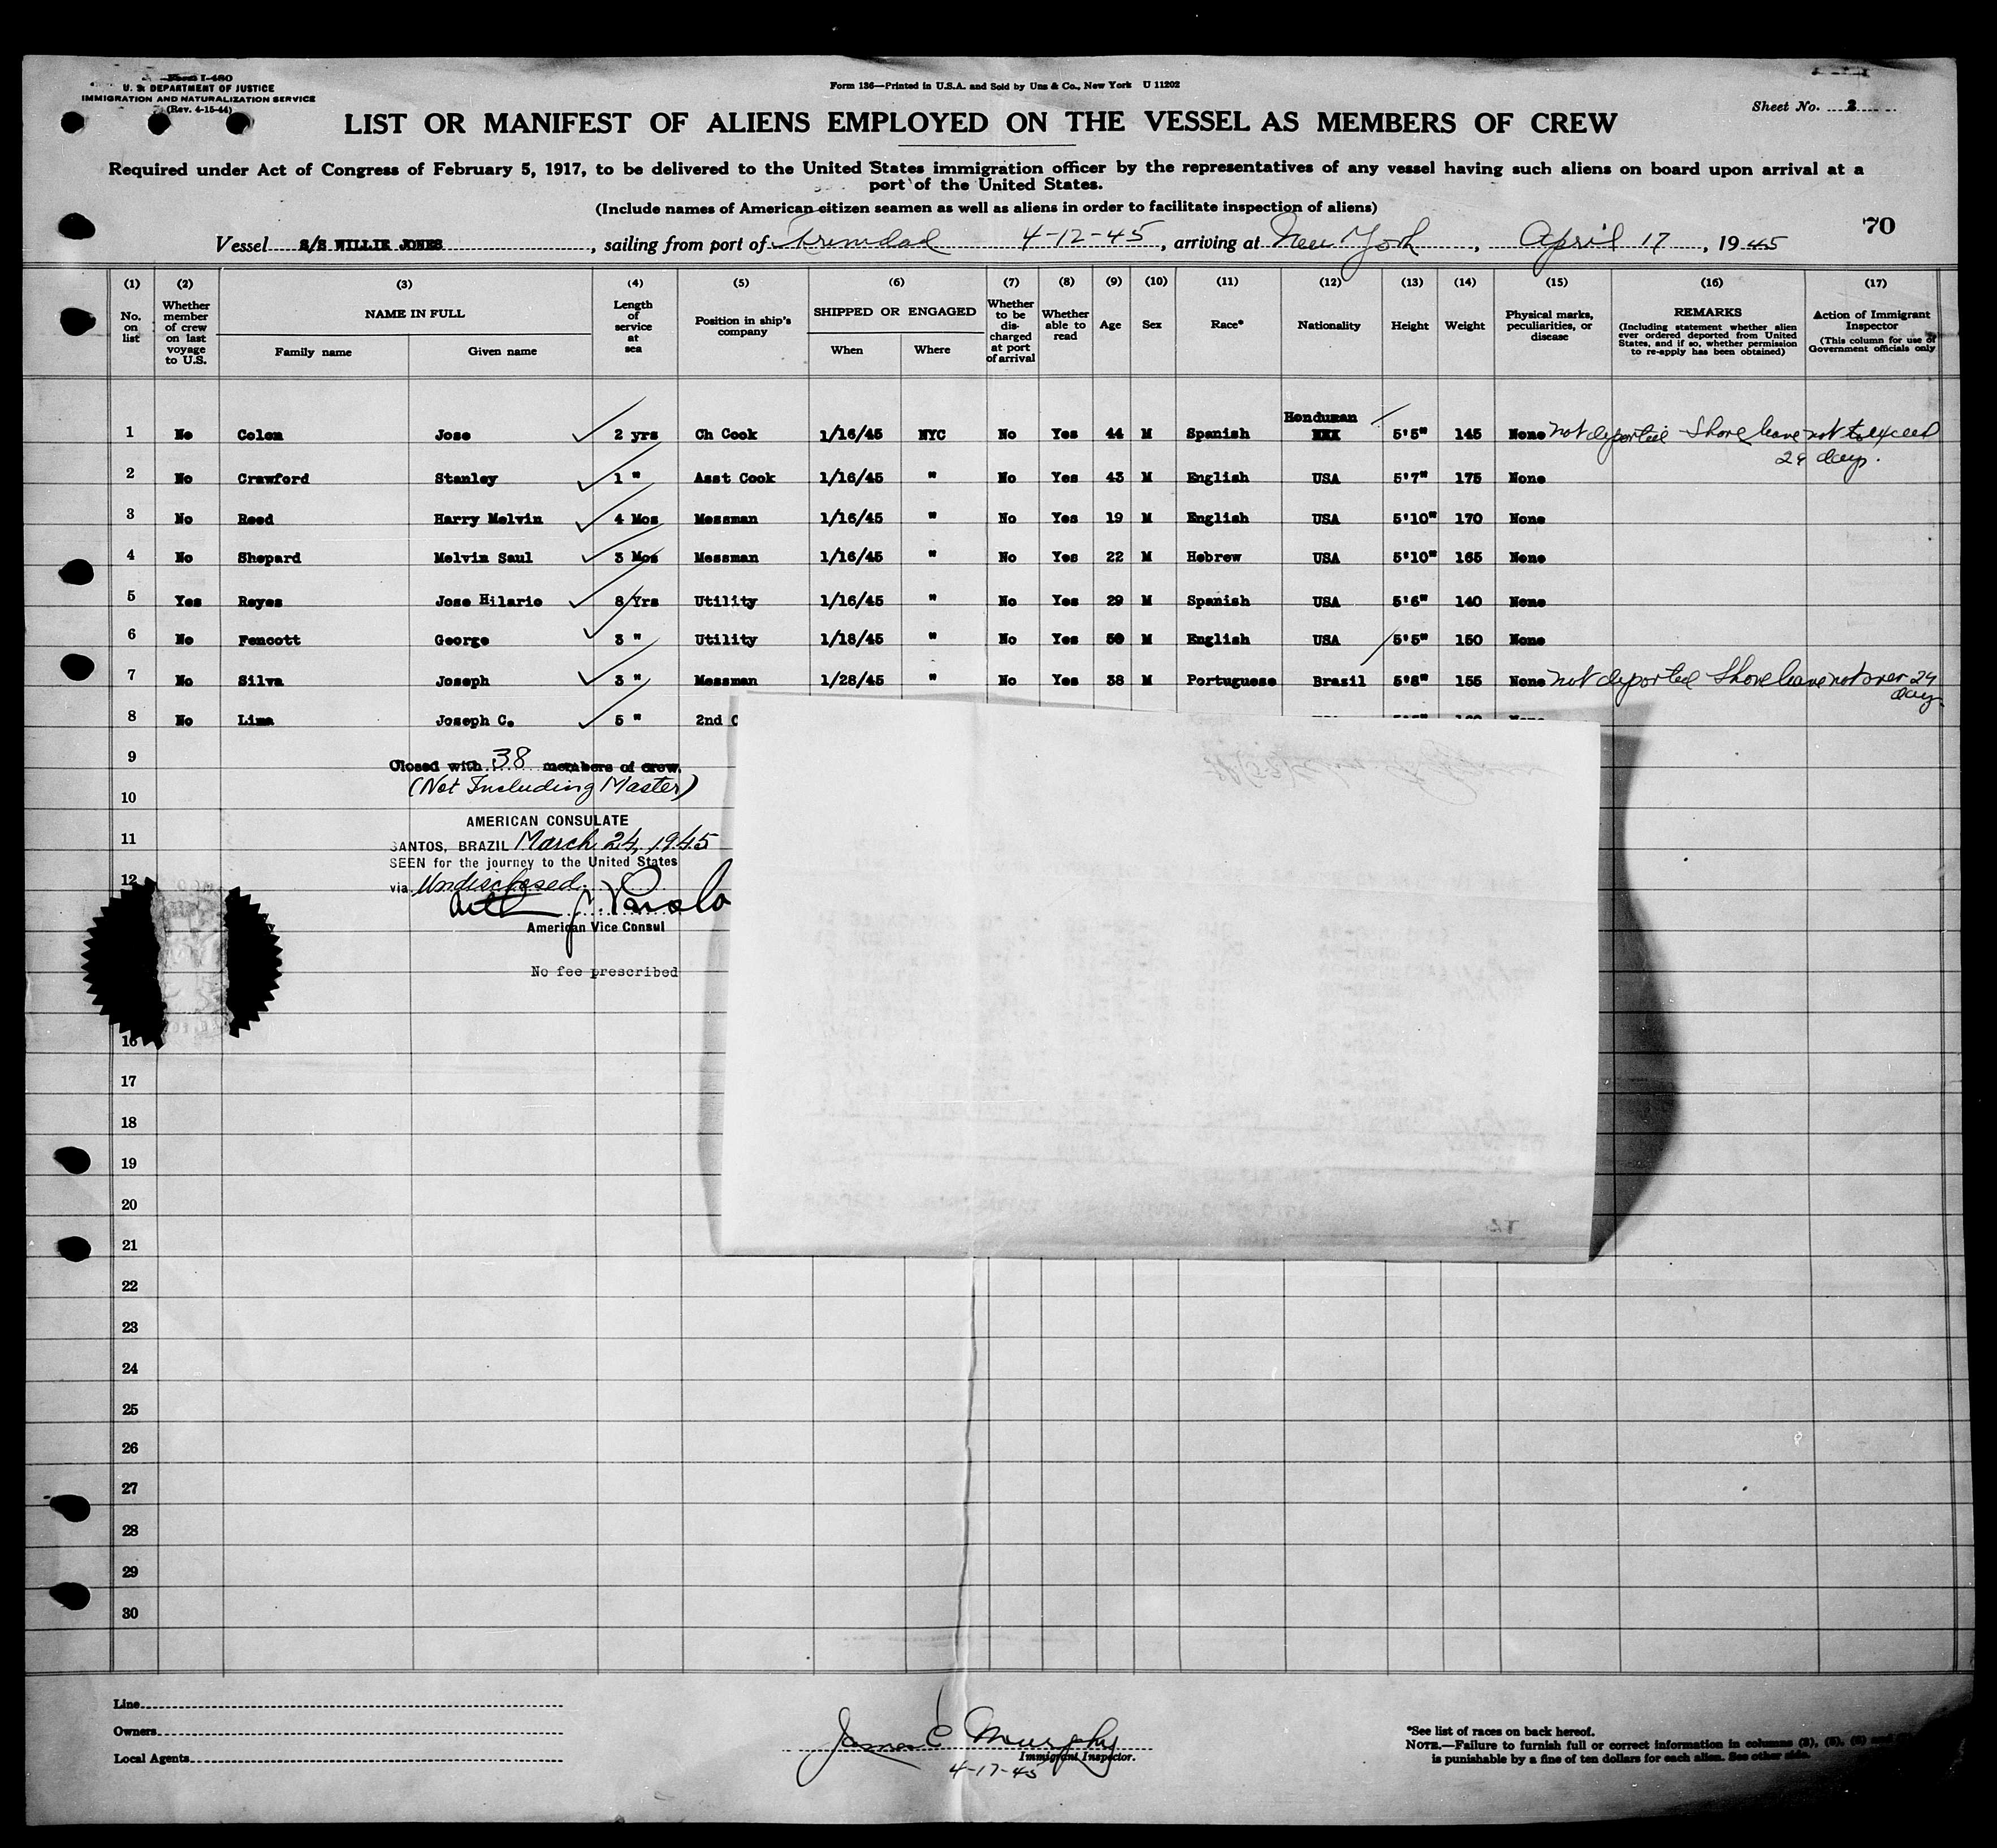 Form I-480
U. S. DEPARTMENT OF JUSTICE
IMMIGRATION AND NATURALIZATION SERVICE
(Rev. 4-15-44)
Form 136—Printed in U.S.A. and Sold by Unz & Co., New York U 11202
Sheet No. 2
LIST OR MANIFEST OF ALIENS EMPLOYED ON THE VESSEL AS MEMBERS OF CREW
Required under Act of Congress of February 5, 1917, to be delivered to the United States immigration officer by the representatives of any vessel having such aliens on board upon arrival at a
port of the United States.
(Include names of American citizen seamen as well as aliens in order to facilitate inspection of aliens)
70
Vessel S/S WILLIE JONES, sailing from port of Trinidad 4-12-45, arriving at New York, April 17, 1945
(1) (2) (3) (4) (5) (6) (7) (8) (9) (10) (11) (12) (13) (14) (15) (16) (17)
No. on list
Whether member of crew on last voyage to U.S.
NAME IN FULL
Family name Given name
Length of service at sea
Position in ship's company
SHIPPED OR ENGAGED
When Where
Whether to be discharged at port of arrival
Whether able to read
Age
Sex
Race*
Nationality
Height
Weight
Physical marks, peculiarities, or disease
REMARKS
(Including statement whether alien ever ordered deported from United States, and if so, whether permission to re-apply has been obtained)
Action of Immigrant Inspector
(This column for use of Government officials only
Honduran
1 No Colon Jose 2 yrs Ch Cook 1/16/45 NYC No Yes 44 M Spanish XXX 5'5" 145 None not deported Shore leave not to exceed
29 days.
2 No Crawford Stanley 1 " Asst Cook 1/16/45 " No Yes 43 M English USA 5'7" 175 None
3 No Reed Harry Melvin 4 Mos Messman 1/16/45 " No Yes 19 M English USA 5'10" 170 None
4 No Shepard Melvin Saul 3 Mos Messman 1/16/45 " No Yes 22 M Hebrew USA 5'10" 165 None
5 Yes Reyes Jose Hilario 8 Yrs Utility 1/16/45 " No Yes 29 M Spanish USA 5'6" 140 None
6 No Fencott George 3 " Utility 1/18/45 " No Yes 50 M English USA 5'5" 150 None
7 No Silva Joseph 3 " Messman 1/28/45 " No Yes 38 M Portuguese Brazil 5'8" 155 None not deported Shore leave not over 29
days.
8 No Lima Joseph C. 5 " 2nd C
9
Closed with 38 members of crew.
(Not Including Master)
10
AMERICAN CONSULATE
11
SANTOS, BRAZIL March 24, 1945
SEEN for the journey to the United States
12
via Undisclosed
American Vice Consul
No fee prescribed
16
17
18
19
20
21
22
23
24
25
26
27
28
29
30
Line
Owners
Local Agents
James C Murphy
Immigrant Inspector.
4-17-45
*See list of races on back hereof.
NOTE.—Failure to furnish full or correct information in columns (3), (5), (6) and
is punishable by a fine of ten dollars for each alien. See other side.